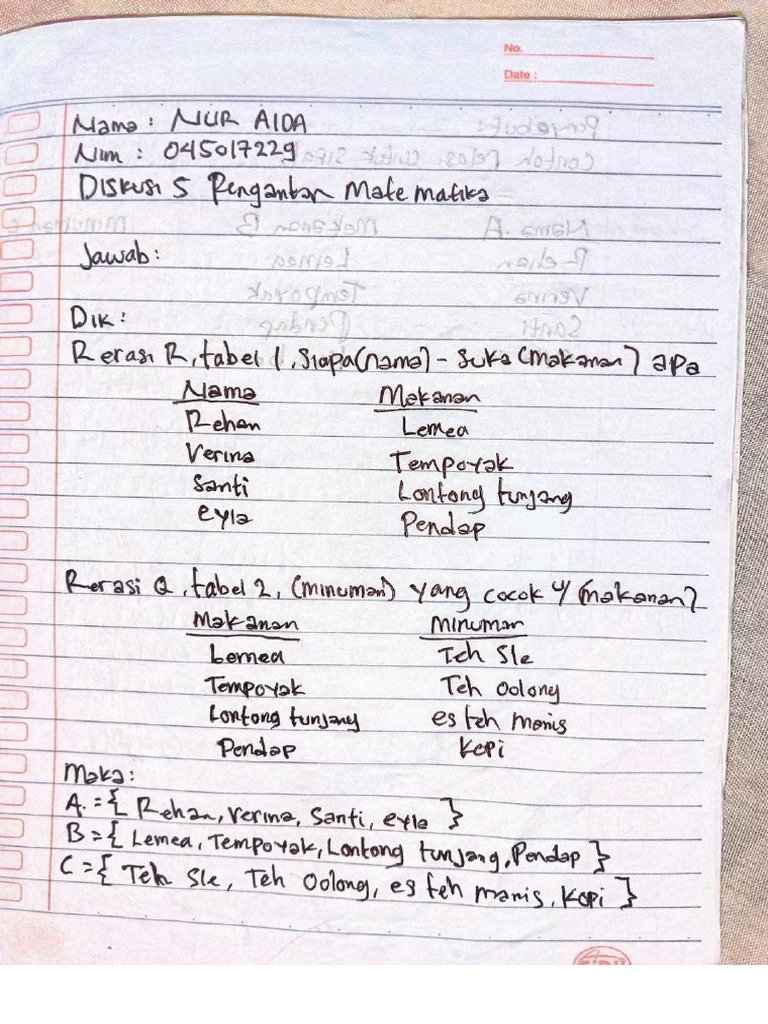 No.
Date :
Nama : NUR AIDA
Nim : 045017229
Diskusi 5 Pengantar Matematika
Jawab:
Dik :
Rerasi R, tabel 1, siapa (nama) - suka (makanan) apa
Nama Makanan
Rehan Lemea
Verina Tempoyak
Santi Lontong tunjang
eyla Pendap
Rerasi Q, tabel 2, (minuman) yang cocok u/ (makanan)
Makanan Minuman
Lemea Teh Sle
Tempoyak Teh Oolong
Lontong tunjang es teh manis
Pendap Kopi
Maka:
A = { Rehan, Verina, Santi, eyla }
B = { Lemea, Tempoyak, Lontong tunjang, Pendap }
C = { Teh Sle, Teh Oolong, es teh manis, Kopi }